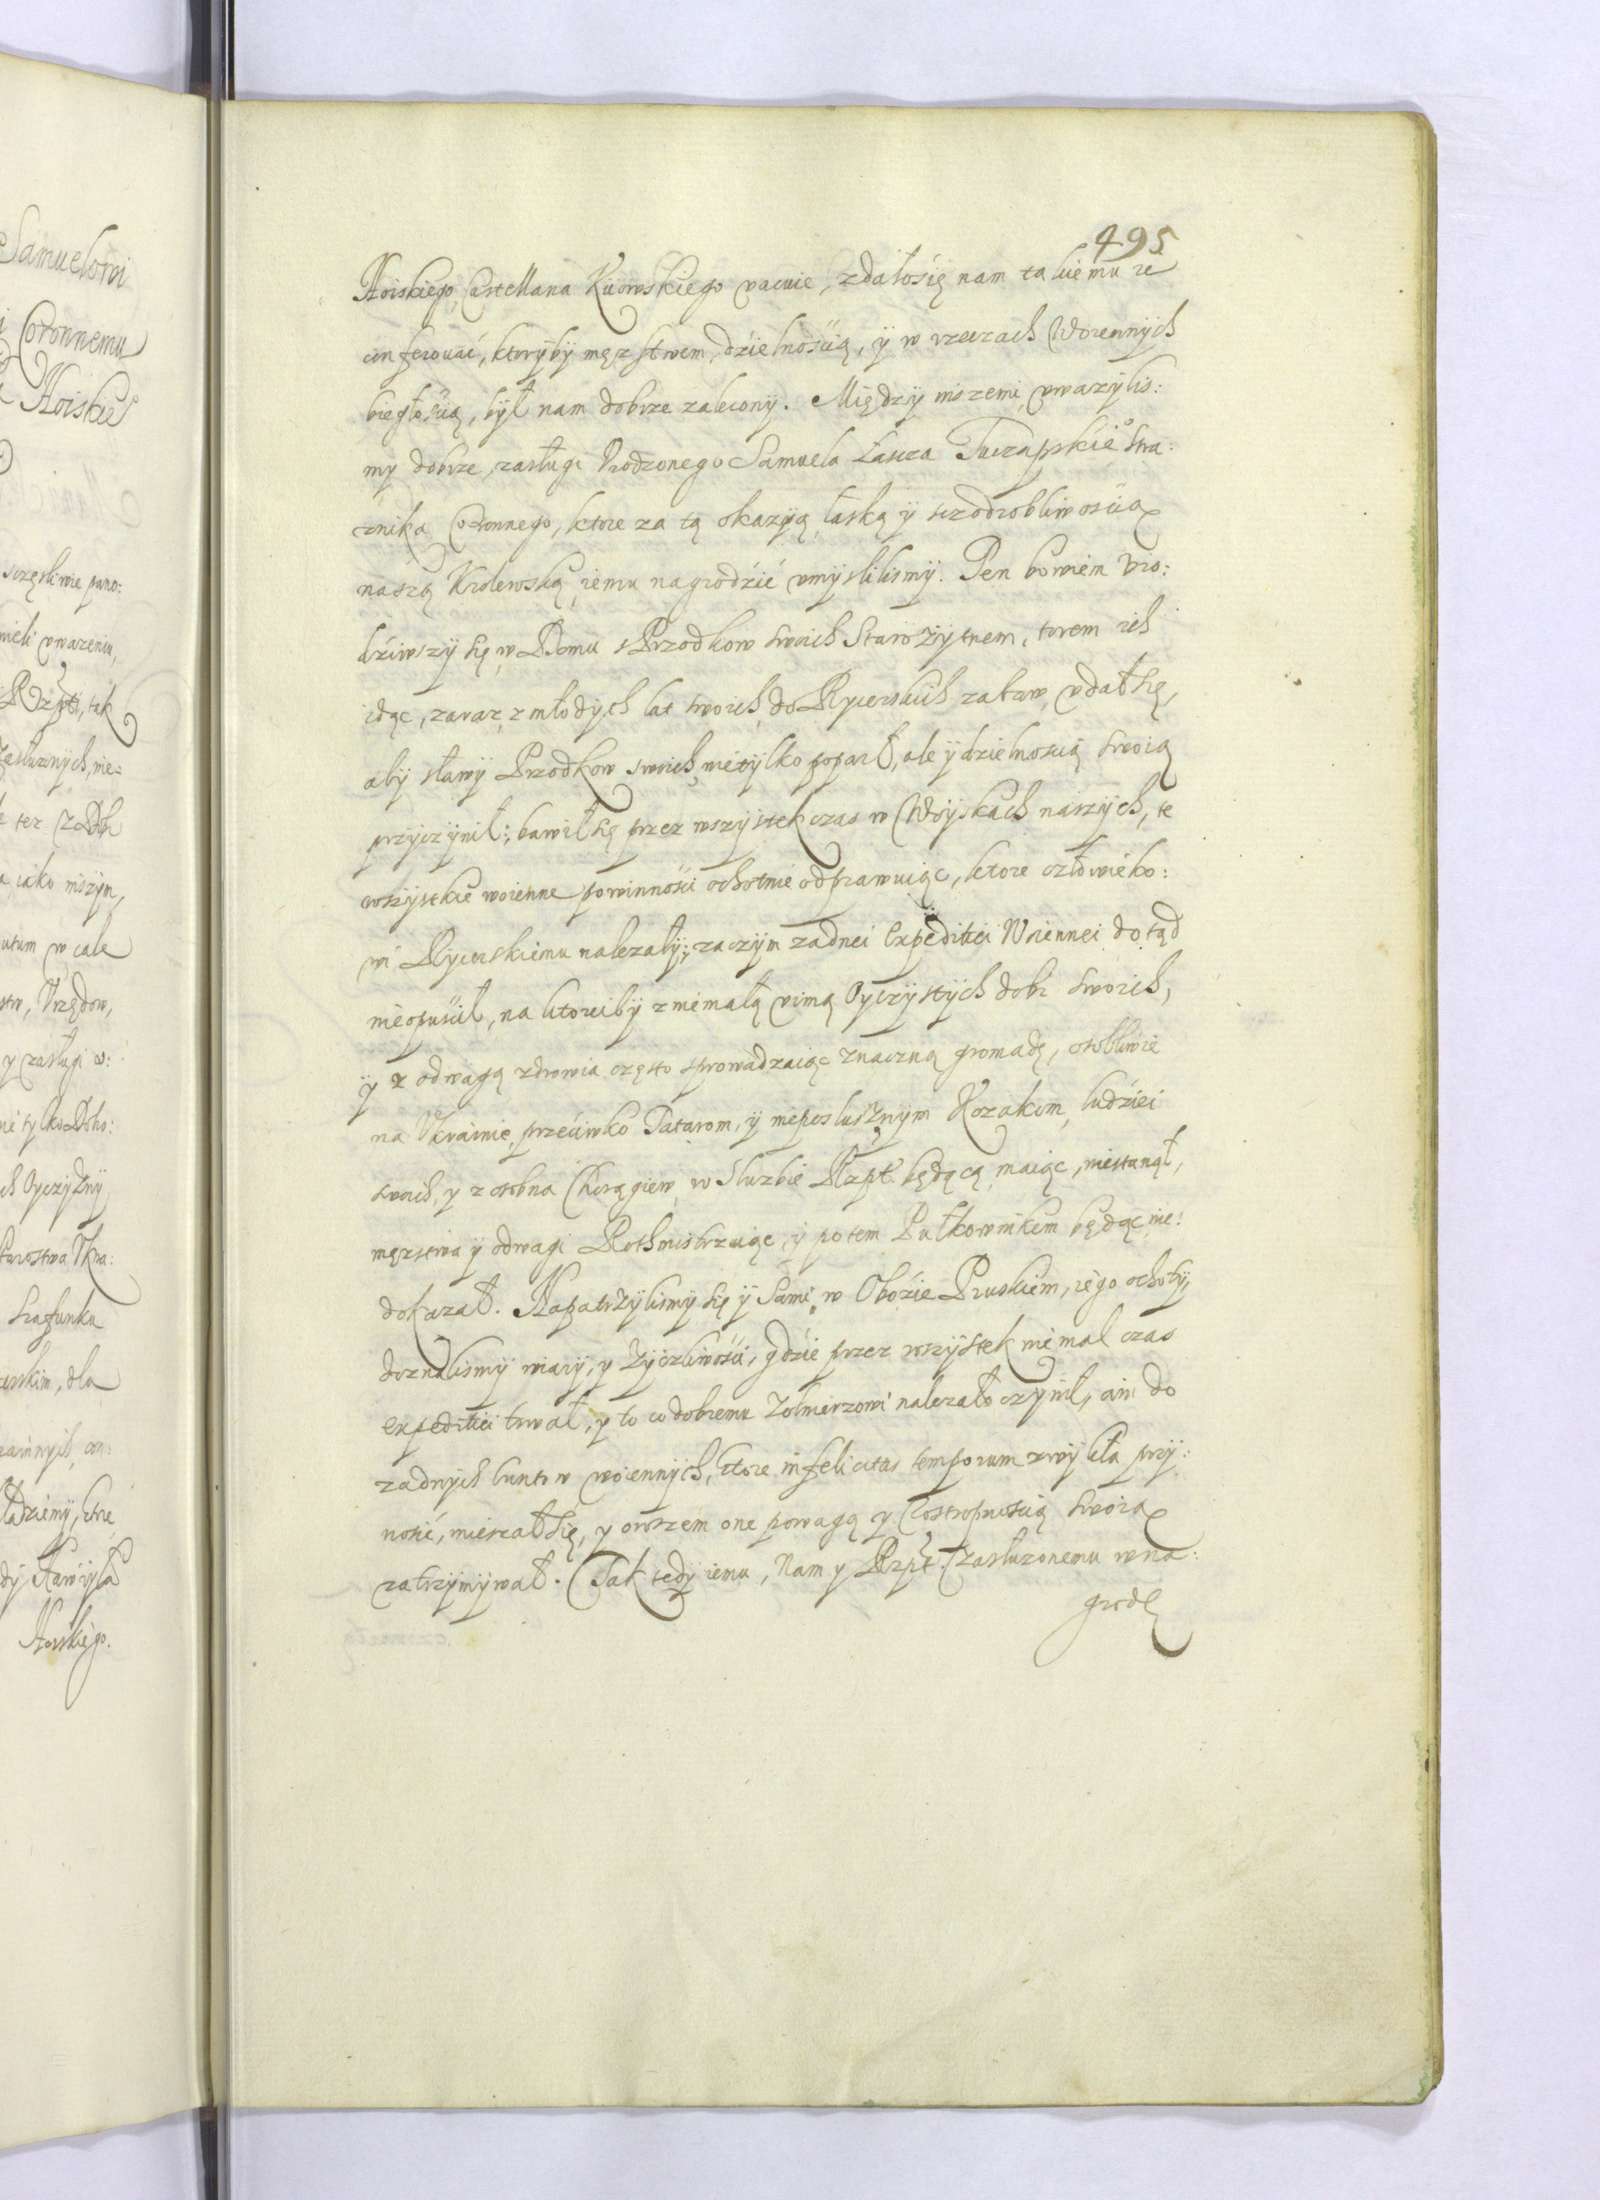 Samuelowi
Coronnemu
Hoiskie
sczęsliwie pano:
mieli vwazeniu,
Rzpti, tak
Zasłuznych, nie=
tez z Dobr
iako inszym,
w cale
Vrzędow,
y zasługi w:
nie tylko Doho:
Oyczyzny
Starostwa Vkra:
szafunku
dla
Hoiskiego.
495
Hoiskiego Castellana Kiiowskiego vacuie, zdało się nam takiemu ie
conferować, ktoryby męzstwem, dzielnoscią, ÿ w rzeczach Woiennÿch
biegłoscią, bÿł nam dobrze zaleconÿ. Międzÿ inszemi vwazÿlis:
my dobrze zasługi Vrodzonego Samuela Łascza Tuczapskie° Stra:
znika Coronnego, ktore za tą okazÿą łaską ÿ sczodrobliwoscią
naszą Krolewską iemu nagrodzić vmÿslilismÿ. Ten bowiem vro:
dziwszÿ się w Domu Przodkow swoich Starozÿtnem, torem ich
idąc, zaraz z młodÿch lat swoich do Rycerskich zabaw vdał się,
abÿ sławÿ Przodkow swoich nie tÿlko poparł, ale ÿ dzielnoscią swoią
przÿczÿnił; bawił się przez wszÿstek czas w Woÿskach naszÿch, te
wszÿstkie woienne powinnosci ochotnie odprawuiąc, ktore człowieko:
wi Rÿcerskiemu nalezałÿ; zaczÿm zadnei Expeditiei Woiennei dotąd
nieopuscił, na ktoreibÿ z niemałą vimą Oÿczÿstÿch dobr swoich,
ÿ z odwagą zdrowia często sprowadzaiąc znaczną gromadę, osobliwie
na Vkrainie przeciwko Tatarom, ÿ nieposlusznÿm Kozakom, ludziei
swoich, y z osobna Chorągiew w Sluzbie Rzpt. będącą maiąc, niestanął,
męzstwa ÿ odwagi Rothmistrzuiąc, ÿ potem Pułkownikiem będąc nie:
dokazał. Napatrzÿlismÿ się ÿ Sami w Obozie Pruskiem, iego ochotÿ,
doznalismÿ wiarÿ, y zÿczliwosci, gdzie przez wszÿstek niemal czas
expeditiei trwał, y to co dobremu Zolnierzowi nalezało czÿnił, ani do
zadnÿch buntow woiennÿch, ktore infelicitas temporum zwÿkła przÿ:
nosić, mieszał się, y owszem one powagą y Rostropnoscią swoią
zatrzÿmÿwał. Tak tedÿ iemu, Nam y Rzpt. Zasłuzonemu wna:
grodę